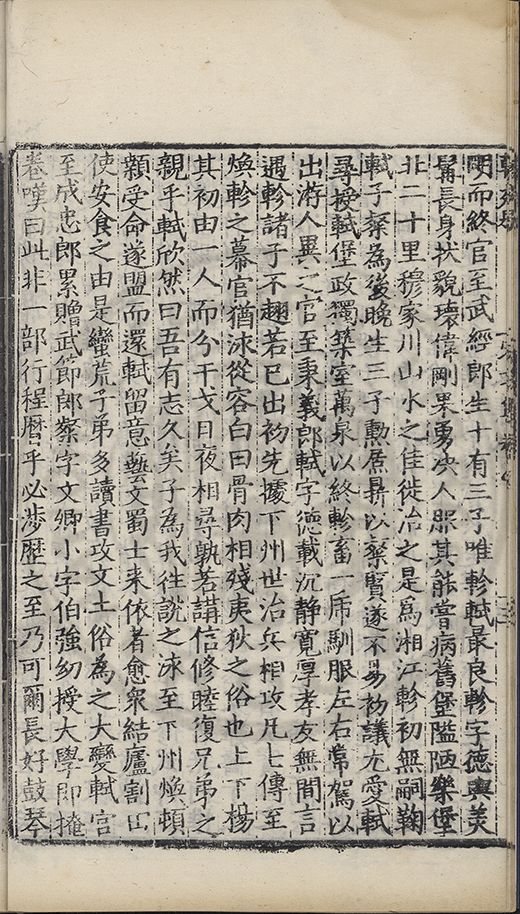 明而終官至武經郎生十有三子唯軫軾最良軫字德輿美
鬚長身状貌瓌偉剛果勇决人服其能嘗病舊堡隘陋樂堡
北二十里穆家川山水之佳徙治之是爲湘江軫初無嗣鞠
軾子粲爲後晚生三子勲居昪以粲賢遂不易初議尤愛軾
尋授軾堡政獨築室萬泉以終軫畜一乕馴服左右常駕以
出游人異之官至秉義郎軾字德載沉静寛厚孝友無間言
遇軫諸子不趐若已出初先據下州世治兵相攻凡七傳至
煥軫之幕官猶浨從容白曰骨肉相殘夷狄之俗也上下楊
其初由一人而分干戈日夜相尋孰若講信修睦復兄弟之
親乎軾欣然曰吾有志久矣子爲我往説之浨至下州煥頓
顙受命遂盟而還軾留意藝文蜀士来依者愈衆結廬割田
使安食之由是蠻荒子弟多讀書攻文土俗爲之大變軾官
至成忠郎累贈武節郎粲字文卿小字伯强幼授大學即掩
卷嘆曰此非一部行程曆乎必涉歷之至乃可爾長好鼓琴